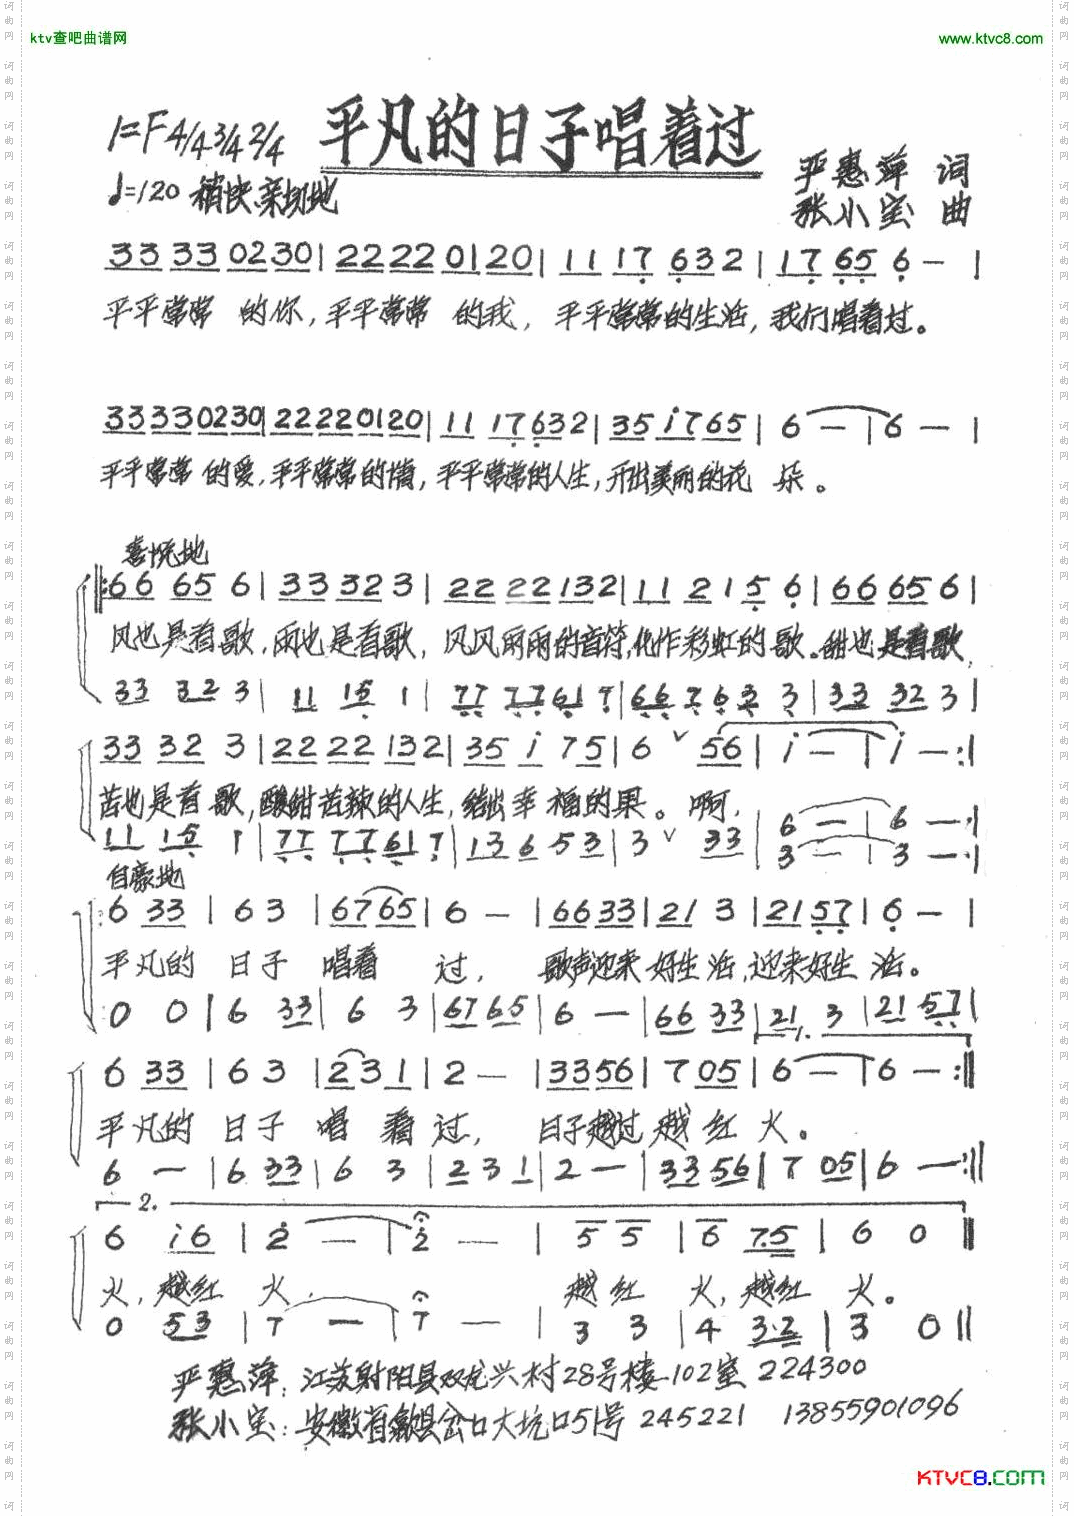 ktv查吧曲谱网 www.ktvc8.com
平凡的日子唱着过
1=F 4/4 3/4 2/4
严惠萍 词
♩=120 稍快、亲切地
张小宝 曲
33 33 02 30 | 22 22 01 20 | 11 17 632 | 17 65 6 — |
平平常常 的你,平平常常 的我, 平平常常的生活,我们唱着过。
33 33 02 30 | 22 22 01 20 | 11 17 632 | 35 i7 65 | 6 — | 6 — |
平平常常 的爱,平平常常的情,平平常常的人生,开出美丽的花 朵。
喜悦地
‖: 66 65 6 | 33 32 3 | 22 22 132 | 11 21 5 6 | 66 65 6 |
风也是首歌,雨也是首歌, 风风雨雨的音符,化作彩虹的歌。甜也是首歌,
33 32 3 | 11 15 1 | 77 77 61 7 | 66 76 3 3 | 33 32 3 |
33 32 3 | 22 22 132 | 35 i 75 | 6 ∨ 56 | i — | i — :|
苦也是首歌,酸甜苦辣的人生,结出幸福的果。啊,
11 15 1 | 77 77 61 7 | 13 6 5 3 | 3 ∨ 33 | 6 — | 6 — :|
3 — | 3 — :|
自豪地
6 33 | 6 3 | 67 65 | 6 — | 66 33 | 21 3 | 21 57 | 6 — |
平凡的 日子 唱着 过, 歌声迎来 好生活,迎来好生 活。
0 0 | 6 33 | 6 3 | 67 65 | 6 — | 66 33 | 21 3 | 21 57 |
1.
6 33 | 6 3 | 2 3 1 | 2 — | 33 56 | 7 05 | 6 — | 6 — :‖
平凡的 日子 唱 着 过, 日子越过 越 红 火。
6 — | 6 33 | 6 3 | 2 3 1 | 2 — | 33 56 | 7 05 | 6 — :‖
2.
6 i6 | 2 — | 2 — | 5 5 | 6 7.5 | 6 0 ‖
火,越红 火, 越 红 火,越红 火。
0 53 | 7 — | 7 — | 3 3 | 4 3.2 | 3 0 ‖
严惠萍:江苏射阳县双龙兴村28号楼102室 224300
张小宝:安徽省歙县岔口大坑口51号 245221 13855901096
KTVC8.COM